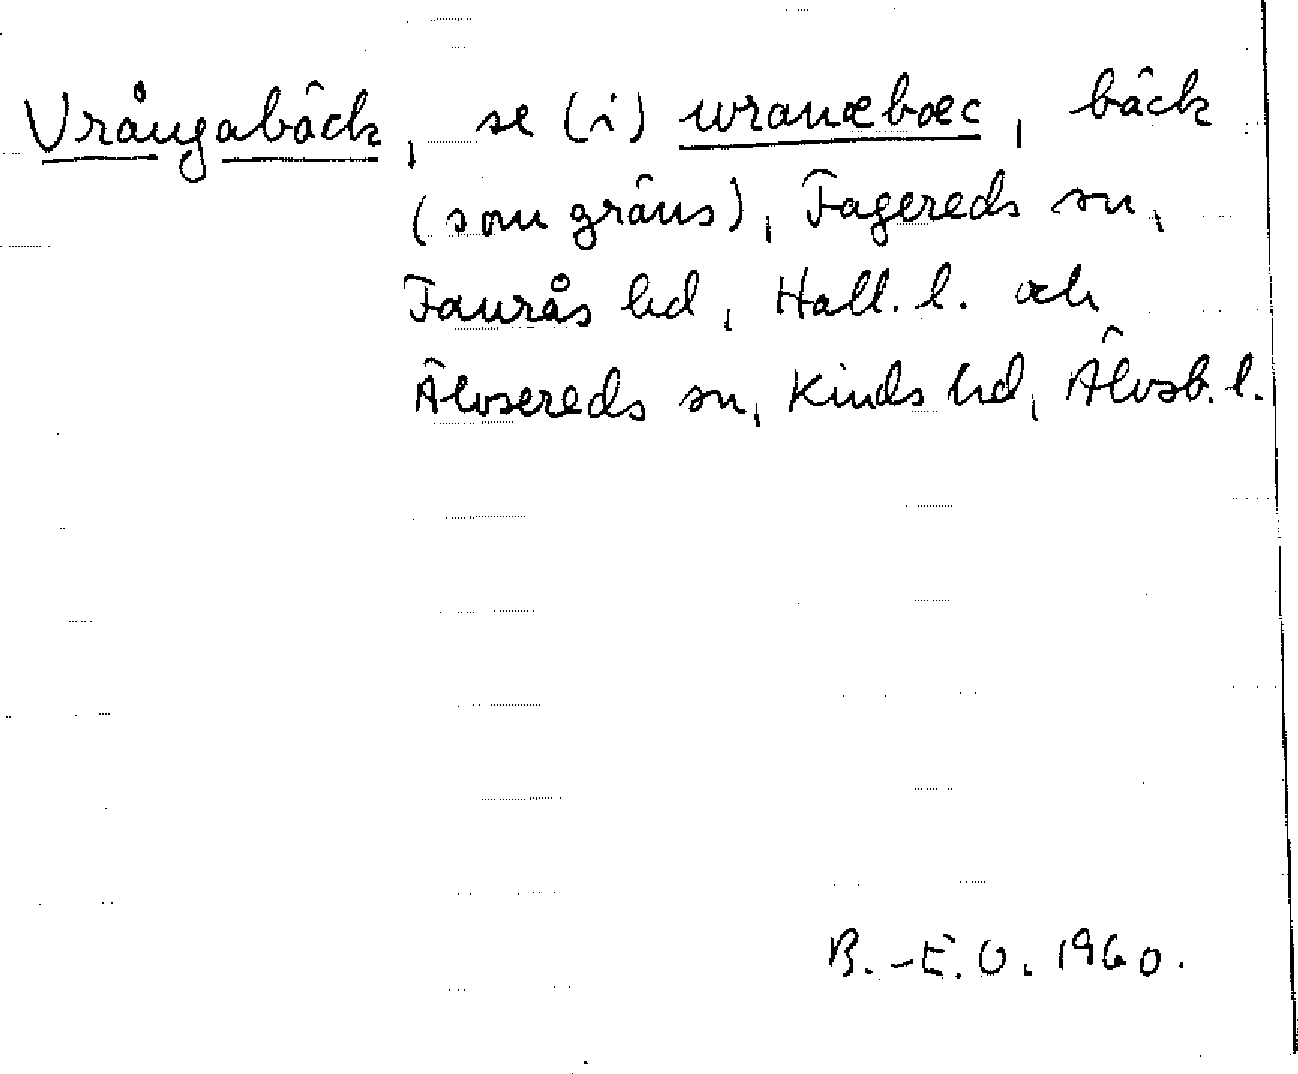 Vrångabäck, se (i) wranæbæc, bäck
(som gräns), Fagereds sn,
Faurås hd, Hall. l. och
Älvsereds sn, Kinds hd, Älvsb. l.
B.-E.O. 1960.